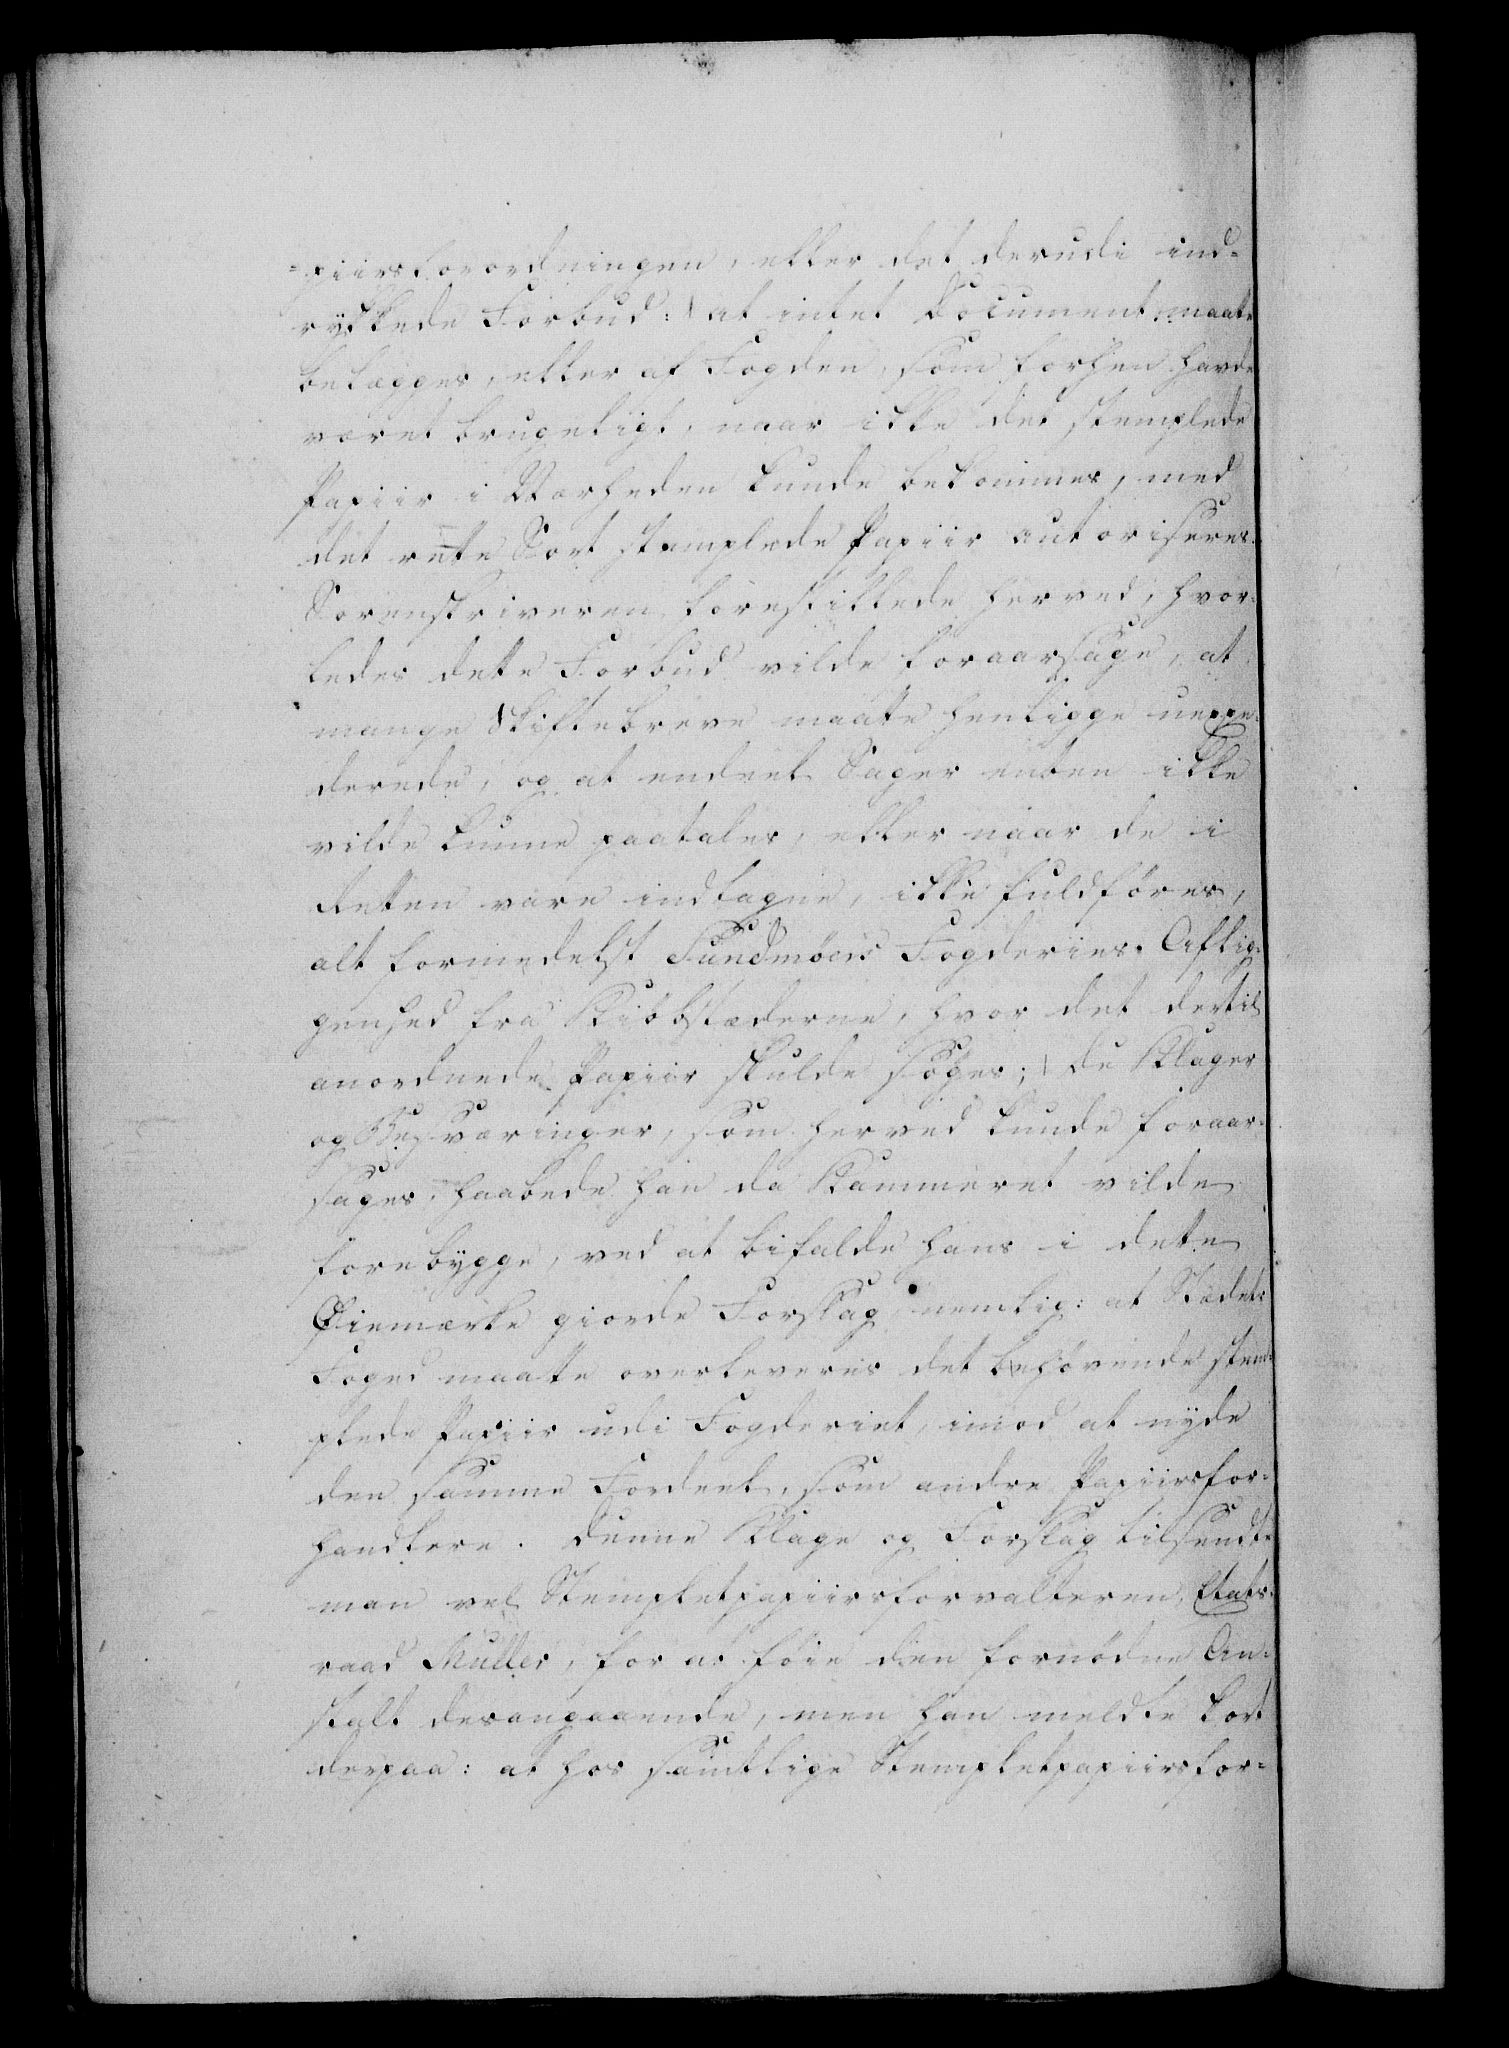 =piirsforordningen, eller det derudi ind-
rykkede Forbud: \ at intet Document maatte
belægges, eller af Fogden, som forhen havde
været brugeligt, naar ikke det stemplede
Papiir i Nærheden kunde bekommes, med
det rette Sort stemplede Papiir autoriseres.
Sorenskriveren forestillede herved, hvor-
ledes dette Forbud vilde foraarsage, at
mange Skiftebreve maatte henligge uexpe-
derede, og at endeel Sager enten ikke
vilde kunne paatales, eller naar de i
Retten vare indtagne, ikke fuldføres,
alt formedelst Sundmøers Fogderies Aflig-
genhed fra Kiøbstæderne, hvor det dertil
anordnede Papiir skulde søges; \ de Klager
og Besværinger, som herved kunde foraar-
sages, haabede han da Kammeret vilde
forebygge, ved at bifalde hans i dette
Øiemærke giorde Forslag nemlig: at Stædets
Foged maatte overleveres det behøvende stem-
plede Papiir udi Fogderiet, imod at nyde
den samme Fordeel, som andre Papiirsfor-
handlere. Denne Klage og Forslag tilsendte
man vel Stempletpapiirsforvalteren, Etats-
raad Müller, for at føie den fornødne An-
stalt desangaaende, men han meldte kort
derpaa: at hos samtlige Stempletpapiirsfor-